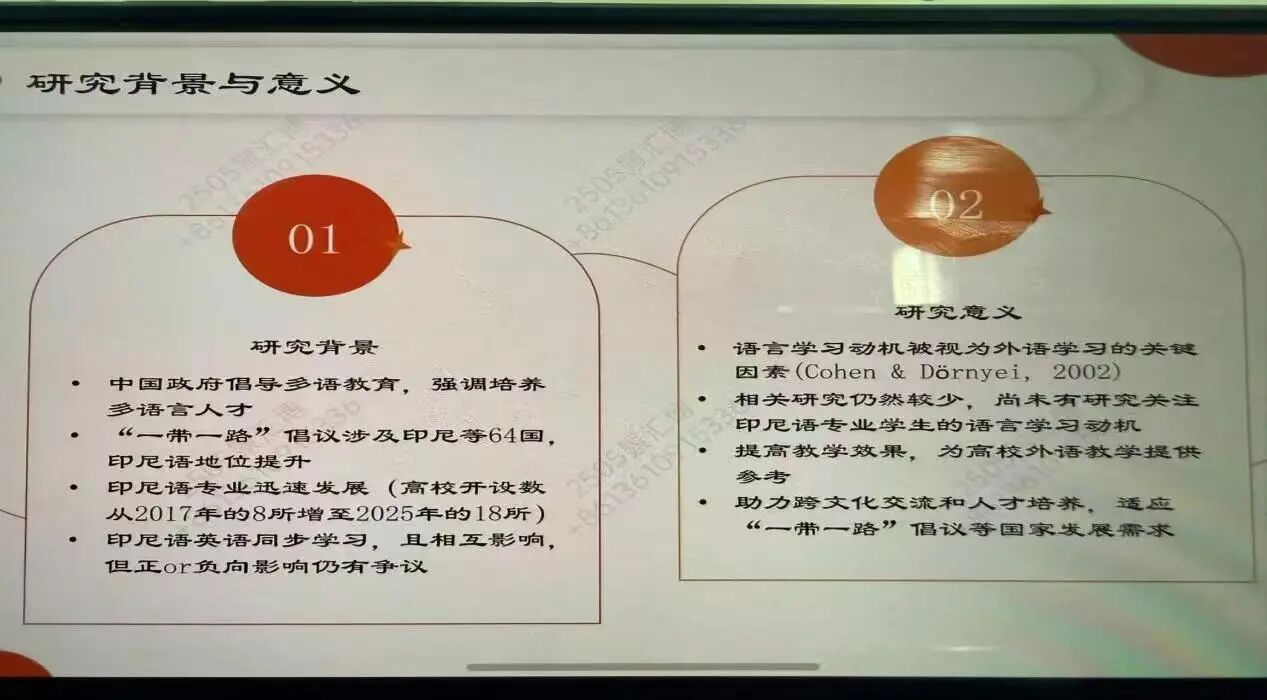 研究背景与意义
01
研究背景
• 中国政府倡导多语教育，强调培养
多语言人才
• “一带一路”倡议涉及印尼等64国，
印尼语地位提升
• 印尼语专业迅速发展（高校开设数
从2017年的8所增至2025年的18所）
• 印尼语英语同步学习，且相互影响，
但正or负向影响仍有争议
02
研究意义
• 语言学习动机被视为外语学习的关键
因素(Cohen & Dörnyei, 2002)
• 相关研究仍然较少，尚未有研究关注
印尼语专业学生的语言学习动机
• 提高教学效果，为高校外语教学提供
参考
• 助力跨文化交流和人才培养，适应
“一带一路”倡议等国家发展需求